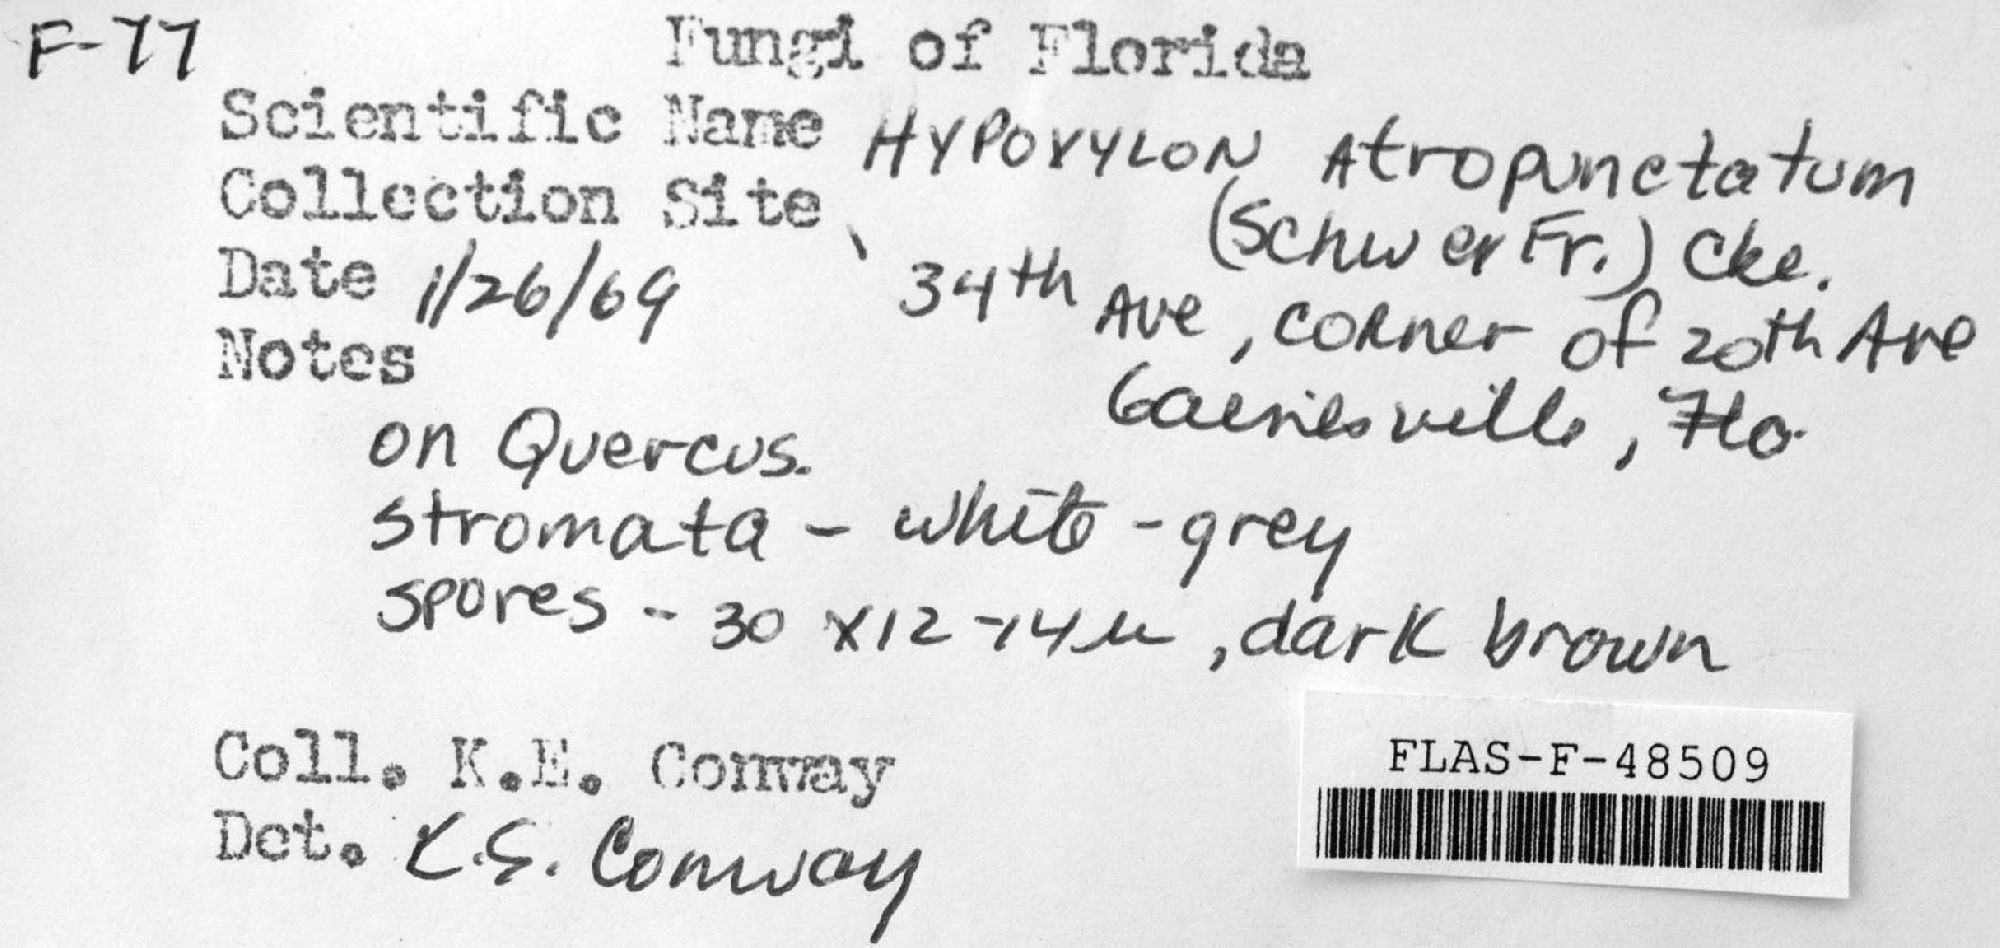 F-77
Fungi of Florida
Scientific Name HYPOXYLON Atropunctatum
(Schw ex Fr.) Cke.
Collection Site 34th Ave, corner of 20th Ave
Gainesville, Fla.
Date 1/26/69
Notes
on Quercus.
stromata - white - grey
spores - 30 x 12-14 µ, dark brown
Coll. K.E. Conway
Det. K.E. Conway
FLAS-F-48509